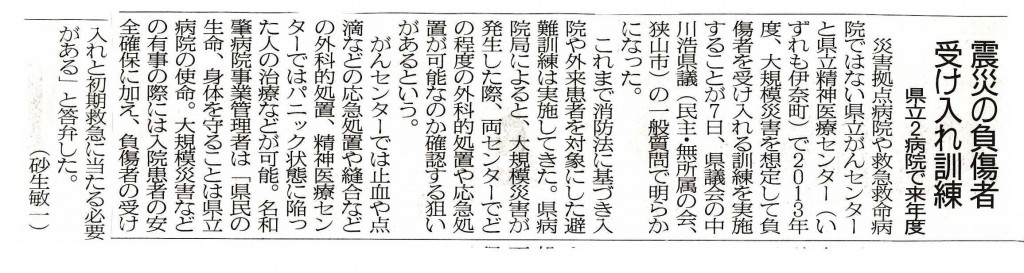 震災の負傷者
受け入れ訓練
県立2病院で来年度
災害拠点病院や救急救命病
院ではない県立がんセンター
と県立精神医療センター（い
ずれも伊奈町）で2013年
度、大規模災害を想定して負
傷者を受け入れる訓練を実施
することが7日、県議会の中
川浩県議（民主・無所属の会、
狭山市）の一般質問で明らか
になった。
これまで消防法に基づき入
院や外来患者を対象にした避
難訓練は実施してきた。県病
院局によると、大規模災害が
発生した際、両センターでど
の程度の外科的処置や応急処
置が可能なのか確認する狙い
があるという。
がんセンターでは止血や点
滴などの応急処置や縫合など
の外科的処置、精神医療セン
ターではパニック状態に陥っ
た人の治療などが可能。名和
肇病院事業管理者は「県民の
生命、身体を守ることは県立
病院の使命。大規模災害など
の有事の際には入院患者の安
全確保に加え、負傷者の受け
入れと初期救急に当たる必要
がある」と答弁した。
（砂生敏一）